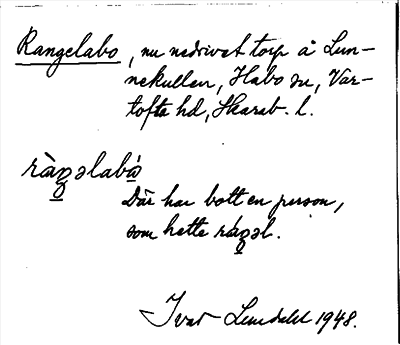 Rangelabo, nu nedrivet torp å Lun-
nekullen, Habo sn, Var-
tofta hd, Skarab. l.
ràŋəlabò
Där har bott en person,
som hette ráŋəl.
Ivar Lundahl 1948.